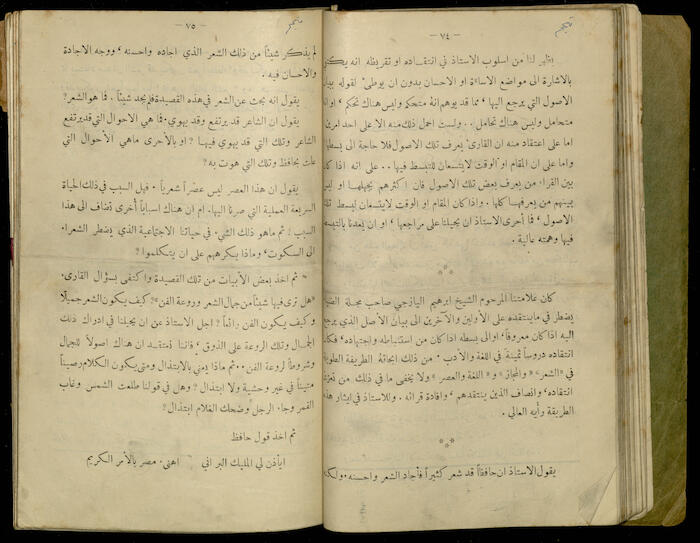 — ٧٤ —
يظهر لنا من اسلوب الاستاذ في انتقاده او تقريظه انه يكتفي
بالاشارة الى مواضع الاساءة او الاحسان بدون ان يوطئ لقوله ببيان
الاصول التي يرجع اليها ، مما قد يوهم انهُ متحكم وليس هناك تحكم ، او انه
متحامل وليس هناك تحامل . . ولست احمل ذلك منه الا على احد امرين
اما على اعتقاده منه ان القارئ يعرف تلك الاصول فلا حاجة الى بسطها
واما على ان المقام او الوقت لا يتسعان للتبسط فيها . . على انه اذا كان
بين القراء من يعرف بعض تلك الاصول فان اكثرهم يجهلها او ليس
بينهم من يعرفها كلها . واذا كان المقام او الوقت لا يتسعان لبسط تلك
الاصول ، فما أحرى الاستاذ ان يحيلنا على مراجعها ، او ان يعدنا بالتبسط
فيها وهمته عالية .
* * *
كان علامتنا المرحوم الشيخ ابرهيم اليازجي صاحب مجلة الضياء
يضطر في ما ينتقده على الأولين والآخرين الى بيان الأصل الذي يرجع
اليه اذا كان معروفاً ، او الى بسطه اذا كان من استنباطه واجتهاده ، فكان
انتقاده دروساً ثمينة في اللغة والأدب . من ذلك ابحاثهُ الطريفة الطويلة
في «الشعر» و «المجاز» و « اللغة والعصر » ولا يخفى ما في ذلك من تعزيز
انتقاده ، وانصاف الذين ينتقدهم ، وافادة قرائه . وللاستاذ في ايثار هذه
الطريقة رأيه العالي .
* * *
يقول الاستاذ ان حافظاً قد شعر كثيراً فأجاد الشعر واحسنه . ولكنه
— ٧٥ —
لم يذكر شيئاً من ذلك الشعر الذي اجاده واحسنه ، ووجه الاجادة
والاحسان فيه .
يقول انه بحث عن الشعر في هذه القصيدة فلم يجد شيئاً . فما هو الشعر ؟
يقول ان الشاعر قد يرتفع وقد يهوي . فما هي الاحوال التي قد يرتفع
الشاعر وتلك التي قد يهوي فيها ؟ او بالأحرى ماهي الأحوال التي
علت بحافظ وتلك التي هوت به ؟
يقول ان هذا العصر ليس عصراً شعرياً . فهل السبب في ذلك الحياة
السريعة العملية التي صرنا اليها . ام ان هناك اسباباً أُخرى تضاف الى هذا
السبب ؟ ثم ماهو ذلك الشيء في حياتنا الاجتماعية الذي يضطر الشعراء
الى السكوت ، وماذا يكرههم على ان يتكلموا ؟
ثم اخذ بعض الأبيات من تلك القصيدة واكتفى بسؤال القارئ .
«هل ترى فيها شيئاً من جمال الشعر وروعة الفن» ؟ كيف يكون الشعر جميلاً
وكيف يكون الفن رائعاً ؟ اجل الاستاذ عن ان يحيلنا في ادراك ذلك
الجمال وتلك الروعة على الذوق ، فاننا نعتقد ان هناك اصولاً للجمال
وشروطاً لروعة الفن . . ثم ماذا يعني بالابتذال ومتى يكون الكلام رصيناً
متيناً في غير وحشية ولا ابتذال ؟ وهل في قولنا طلعت الشمس وغاب
القمر وجاء الرجل وضحك الغلام ابتذال ؟
ثم اخذ قول حافظ
ايأذن لي المليك البر اني اهنئ مصر بالأمر الكريم